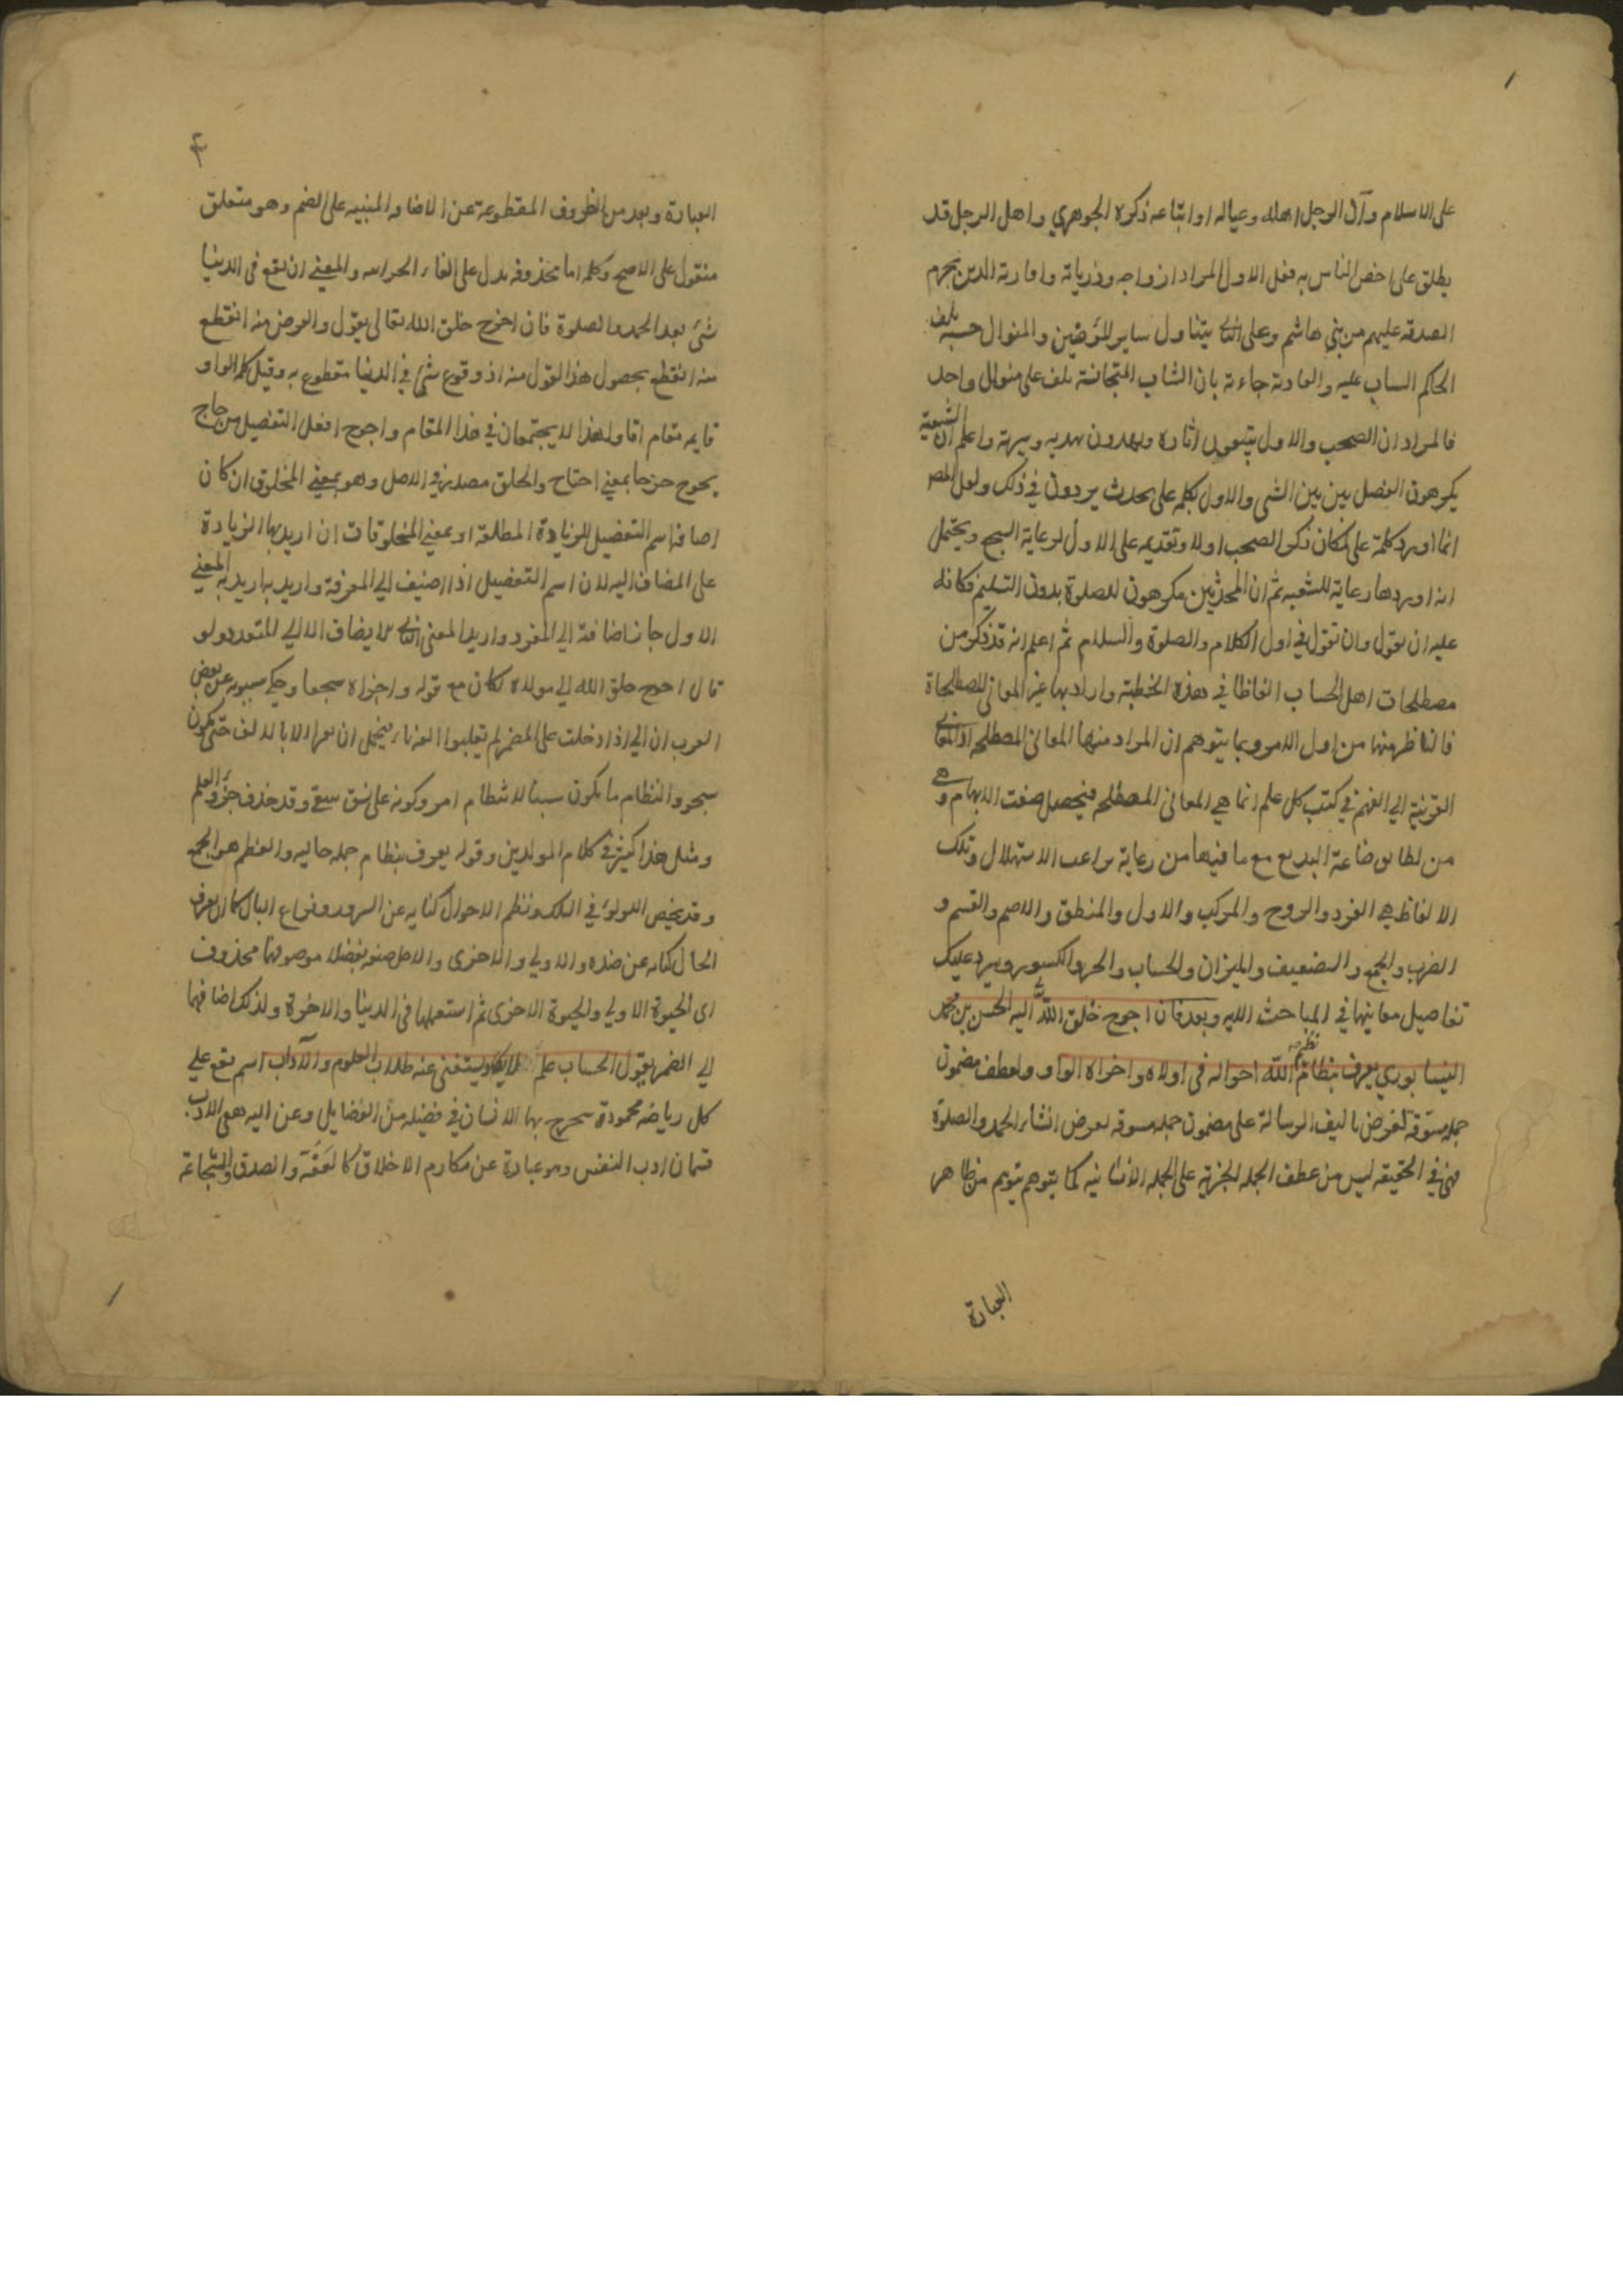 على الاسلام وآل الرجل اهله وعياله او اتباعه ذكره الجوهري واهل الرجل قد
يطلق على اخص الناس به فعلى الاول المراد ازواجه وذرياته واقاربه الذين يحرم
الصدقه عليهم من بني هاشم وعلى الثاني يتناول ساير المؤمنين والمنوال خشبه يلف
الحاكم الساب عليه والعادة جاءته بان الثياب المتجانسة تلف على منوال واحد
فالمراد ان الصحب والاول يتبعون اثاره ويهدون بهديه وسيرته واعلم ان الشيعية
يكرهون الفصل بين بين النبي والاول بكلمه على بحدث يردون في ذلك ولعل المصر
انما اورد كلمة على لمكان ذكر الصحب اولا وتقديمه على الاول لرعاية السجع ويحتمل
انه اوردها رعاية للشعبه ثم ان المحدثين مكرهون للصلوة بدون التسليم فكانه
عليه ان يقول وان تقول في اول الكلام والصلوة والسلام ثم اعلم انه قد ذكر من
مصطلحات اهل الحساب الفاظا في هذه الخطبة واراد بها غير المعاني المصطلحاة
فالناظر فيها من اول الامر وبما يتوهم ان المراد منها المعاني المصطلحه اذ المعاني
القريبة الى الفهم في كتب كل علم انما هي المعاني المصطلحه فيحصل صنعت الابهام وهي
من لطايف صناعة البديع مع ما فيها من رعاية براعت الاستهلال وتلك
الالفاظ هي الفرد والزوج والمركب والاول والمنطق والاصم والقسم و
الضرب والجمع والتضعيف والميزان والحساب والجزء والكسور وسيرد عليك
تفاصيل معانيها في المباحث الاتيه وبعد فان احوج خلق الله اليه الحسن بن محمد
النيسابوري يعرف بنظام نظم الله احواله في اولاه واخراه الواو ولعطف مضمون
جمله مسوقة لغرض تاليف الرسالة على مضمون جمله مسوقه لغرض انشاء الحمد والصلوة
فهي في الحقيقه ليس من عطف الجمله الخبرية على الجمله الانشائيه كما يتوهم من ظاهر
العبارة
٤
العبارة وبعد من الظروف المقطوعة عن الاضافه المبنيه على الضم وهو متعلق
منقول على الاصح وكلمه اما محذوفه يدل على الفاء الجوابيه والمعني ان يقع في الدنيا
شئ بعد الحمد والصلوة فان احوج خلق الله تعالى يقول والغرض منه القطع
منه القطع بحصول هذا القول منه اذ وقوع شئ في الدنيا مقطوع به وقيل كلمه الواو
قايم مقام اما ولهذا لا يجتمعان في هذا المقام واحوج افعل التفضيل من حاج
يحوج حوجا بمعني احتاج والخلق مصدر في الاصل وهو بمعني المخلوق ان كان
اضافه اسم التفضيل للزيادة المطلقة او بمعني المخلوقات ان اريد بها الزيادة
على المضاف اليه لان اسم التفضيل اذا اضيف الى المعرفة واريد به المعني
الاول جاز اضافته الى المفرد واريد المعنى الثاني لا يضاف الا الى المتعدد ولو
قال احوج خلق الله الى مولاه لكان مع قوله واخراه سجعا وحكي سيبويه عن بعض
العرب ان الى اذا دخلت على المضمر لم يقلبوا الفه ياء فيحتمل ان يقرا الاه بالالف حتى يكون
سجعا والنظام ما يكون سببا لانتظام امر وكونه على نسق سوي وقد حذف جزء العلم
ومثل هذا كثير في كلام المولدين وقوله يعرف بنظام جمله حاليه والنظم هو الجمع
وقد يخص اللولؤ في السلك ونظم الاحوال كنايه عن السرور وفراغ البال كما ان تفرق
الحال كنايه عن ضده والاولي والاخرى والاصل صفه تفضيل موصوفها محذوف
اى الحيوة الاولي والحيوة الاخرى ثم استعملها في الدنيا والاخرة ولذلك اضافها
الى الضمير يقول الحساب علم لا يكاد يستغني عنه طلاب العلوم والآداب اسم يقع علي
كل رياضه محمودة يتخرج بها الانسان في فضيله من الفضايل وعن اليه هي الادب
قسمان ادب النفس وهو عبارة عن مكارم الاخلاق كالعفة والصدق والشجاعة